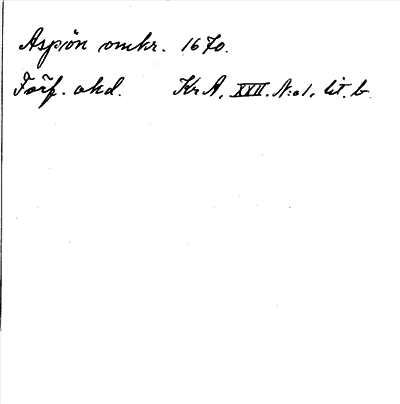 Aspön omkr. 1670.
Förf. okd. KrA, XXII. N:o 1, lit. b.